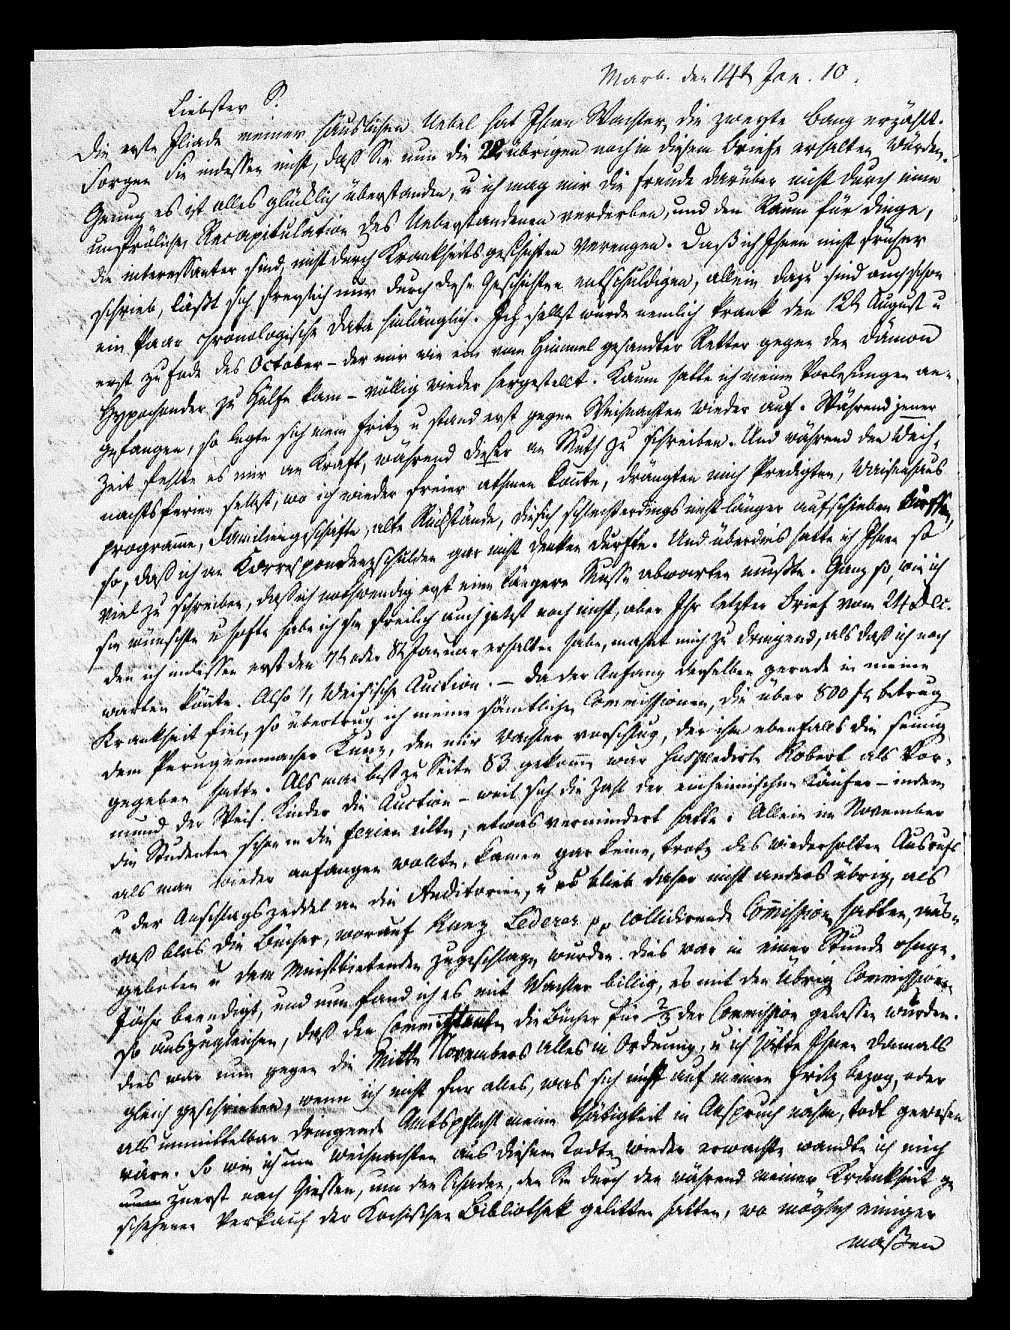 Marb. den 14t Jan. 10.
Liebster S.
Die erste Iliade meiner häuslichen Uebel hat Ihnen Wachler, die zweyte Bang erzählt.
Sorgen Sie indessen nicht, daß Sie nun die 22 übrigen noch in diesem Briefe erhalten würden.
Genug es ist alles glücklich überstanden, u ich mag mir die Freude darüber nicht durch eine
unfröhliche Recapitulation des Ueberstandenen verderben, und den Raum für Dinge,
die interessanter sind, nicht durch Krankheitsgeschichten verengen. Daß ich Ihnen nicht früher
schrieb, läßt sich freylich nur durch diese Geschichten entschuldigen, allein dazu sind auch schon
ein Paar chronologische Data hinlänglich. Ich selbst wurde nemlich krank den 12t August u
erst zu Ende des October – der mir wie ein vom Himmel gesandter Retter gegen den Dämon
Hypochonder zu Hülfe kam – völlig wieder hergestellt. Kaum hatte ich meine Vorlesungen an-
gefangen, so legte sich mein Fritz u stand erst gegen Weihnachten wieder auf. Während jener
Zeit fehlte es mir an Kraft, während dieser an Muth zu schreiben. Und während den Weih-
nachtsferien selbst, wo ich wieder freier athmen konnte, drängten mich Predigten, Waisenhaus
programme, Familiengeschäfte, alte Rückstände, die sich schlechterdings nicht länger aufschieben ließen,
so, daß ich an Korrespondenzschulden gar nicht denken durfte. Und überdies hatte ich Ihnen so
viel zu schreiben, daß ich nothwendig erst eine längere Musse abwarten mußte. Ganz so, wie ich
sie wünschte u hofte habe ich sie freilich auch jetzt noch nicht, aber Ihr letzter Brief vom 24 Dec.
den ich indessen erst den 7t oder 8t Januar erhalten habe, mahnt mich zu dringend, als daß ich noch
warten könnte. Also 1, Weisische Auction. – Da der Anfang derselben gerade in meine
Krankheit fiel, so übertrug ich meine sämtlichen Commissionen, die über 800 fl betrug
dem Peruquenmacher Kunz, den mir Wachler vorschlug, der ihm ebenfalls die seinig
gegeben hatte. Als man bis zu Seite 83 gekommen war suspendirte Robert als Vor-
mund der Weis. Kinder die Auction – weil sich die Zahl der einheimischen Käufer – indem
die Studenten schon in die Ferien eilten, etwas vermindert hatte. Allein im November
als man wieder anfangen wollte, kamen gar keine, trotz des wiederholten Ausrufs
u der Anschlagszeddel an die Auditorien, u es blieb daher nicht anders übrig, als
daß blos die Bücher, worauf Kunz Lederer pp collidirende Commission hatten, aus-
geboten u dem Meistbietenden zugeschlagen wurden. Dies war in einer Stunde ohnge-
fähr beendigt, und nun fand ich es mit Wachler billig, es mit den übrig Commissionen
so auszugleichen, daß den Committenten die Bücher für 2/3 der Commission gelassen würden.
Dies war nun gegen die Mitte Novembers alles in Ordnung, u ich hätte Ihnen damals
gleich geschrieben, wenn ich nicht für alles, was sich nicht auf meinen Fritz bezog, oder
als unmittelbar dringende Amtspflicht meine Thätigkeit in Anspruch nahm, todt gewesen
wäre. So wie ich um Weihnachten aus diesem Tode wieder erwachte wandte ich mich
nun zuerst nach Giessen, um den Schaden, den Sie durch den während meiner Krankheit ge
schehenen Verkauf der Kochischen Bibliothek gelitten hatten, wo möglich einiger
maßen